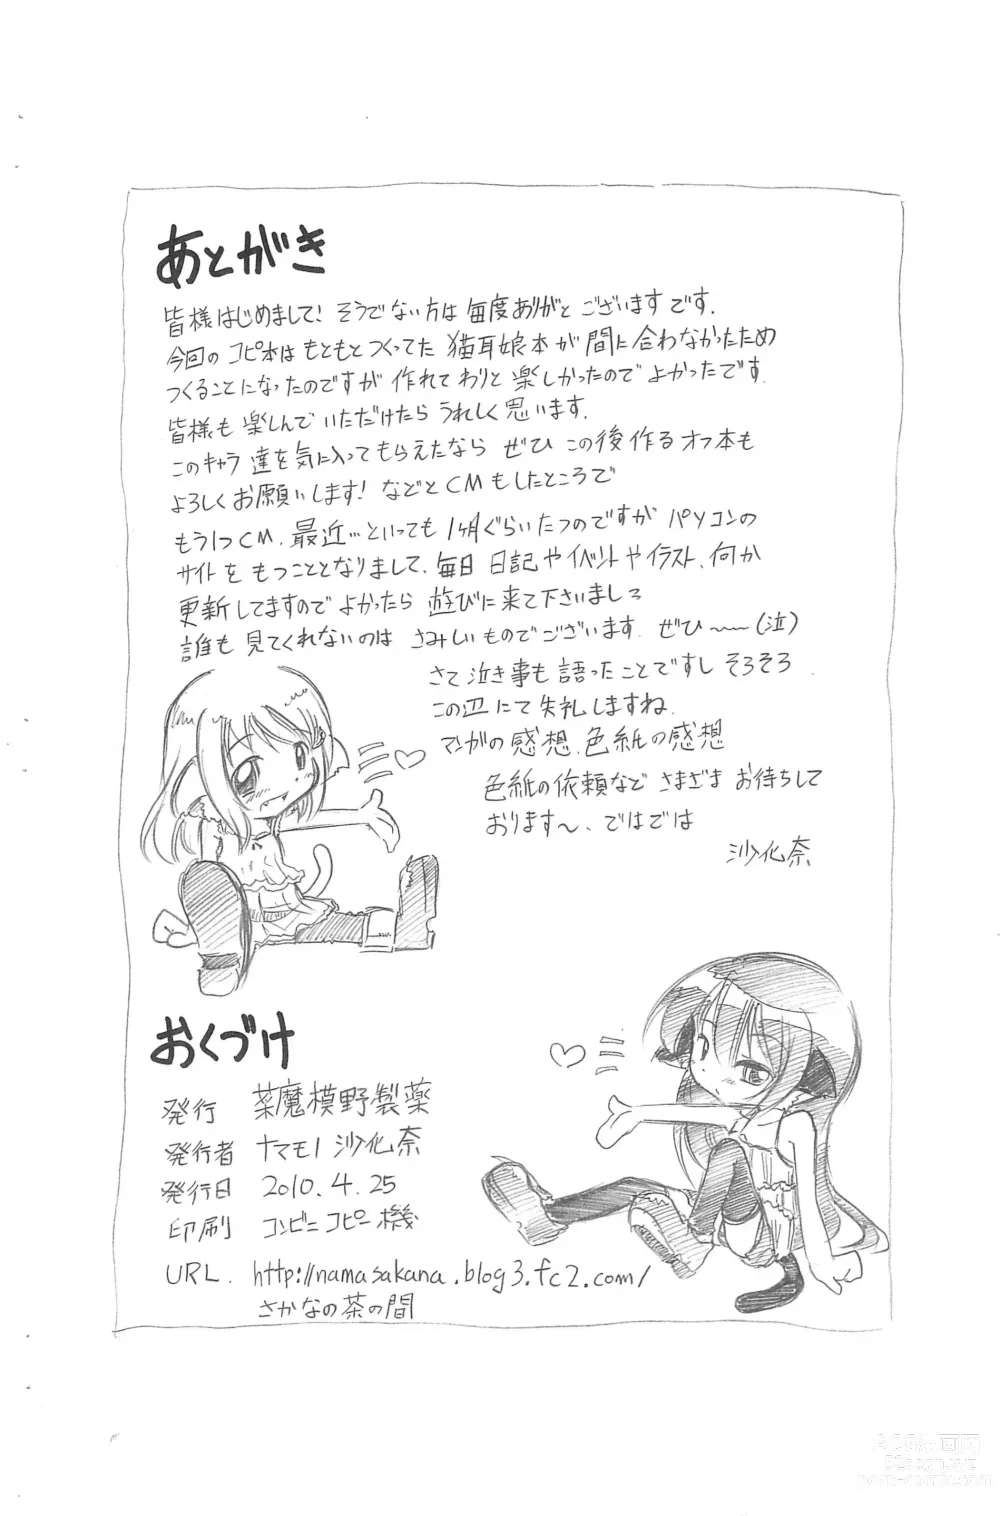 あとがき
皆様はじめまして！そうでない方は毎度ありがとございますです.
今回のコピ本はもともとつくってた猫耳娘本が間に合わなかったため
つくることになったのですが作れてわりと楽しかったのでよかったです.
皆様も楽しんでいただけたらうれしく思います.
このキャラ達を気に入ってもらえたならぜひこの後作るオフ本も
よろしくお願いします！などとCMもしたところで
もう1つCM.最近…といっても1ヶ月ぐらいたつのですがパソコンの
サイトをもつこととなりまして、毎日日記やイベントやイラスト、何か
更新してますのでよかったら遊びに来て下さいましろ
誰も見てくれないのはさみしいものでございます.ぜひ〜〜(泣)
さて泣き事も語ったことですしそろそろ
この辺にて失礼しますね.
マンガの感想、色紙の感想
色紙の依頼などさまざまお待ちして
おります〜、ではでは
沙化奈
おくづけ
発行 菜魔模野製薬
発行者 ナマモノ沙化奈
発行日 2010.4.25
印刷 コンビニコピー機
URL. http://namasakana.blog3.fc2.com/
さかなの茶の間